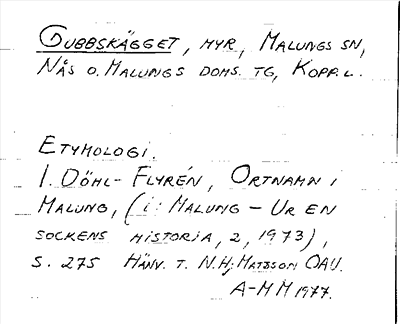 GUBBSKÄGGET, MYR, MALUNGS SN,
NÅS O. MALUNGS DOMS. TG, KOPP. L.
ETYMOLOGI.
I. DÖHL-FLYRÉN, ORTNAMN I
MALUNG, (i: MALUNG – UR EN
SOCKENS HISTORIA, 2, 1973),
S. 275 HÄNV. T. N.Hj. MATSSON OAU.
A-M M 1977.